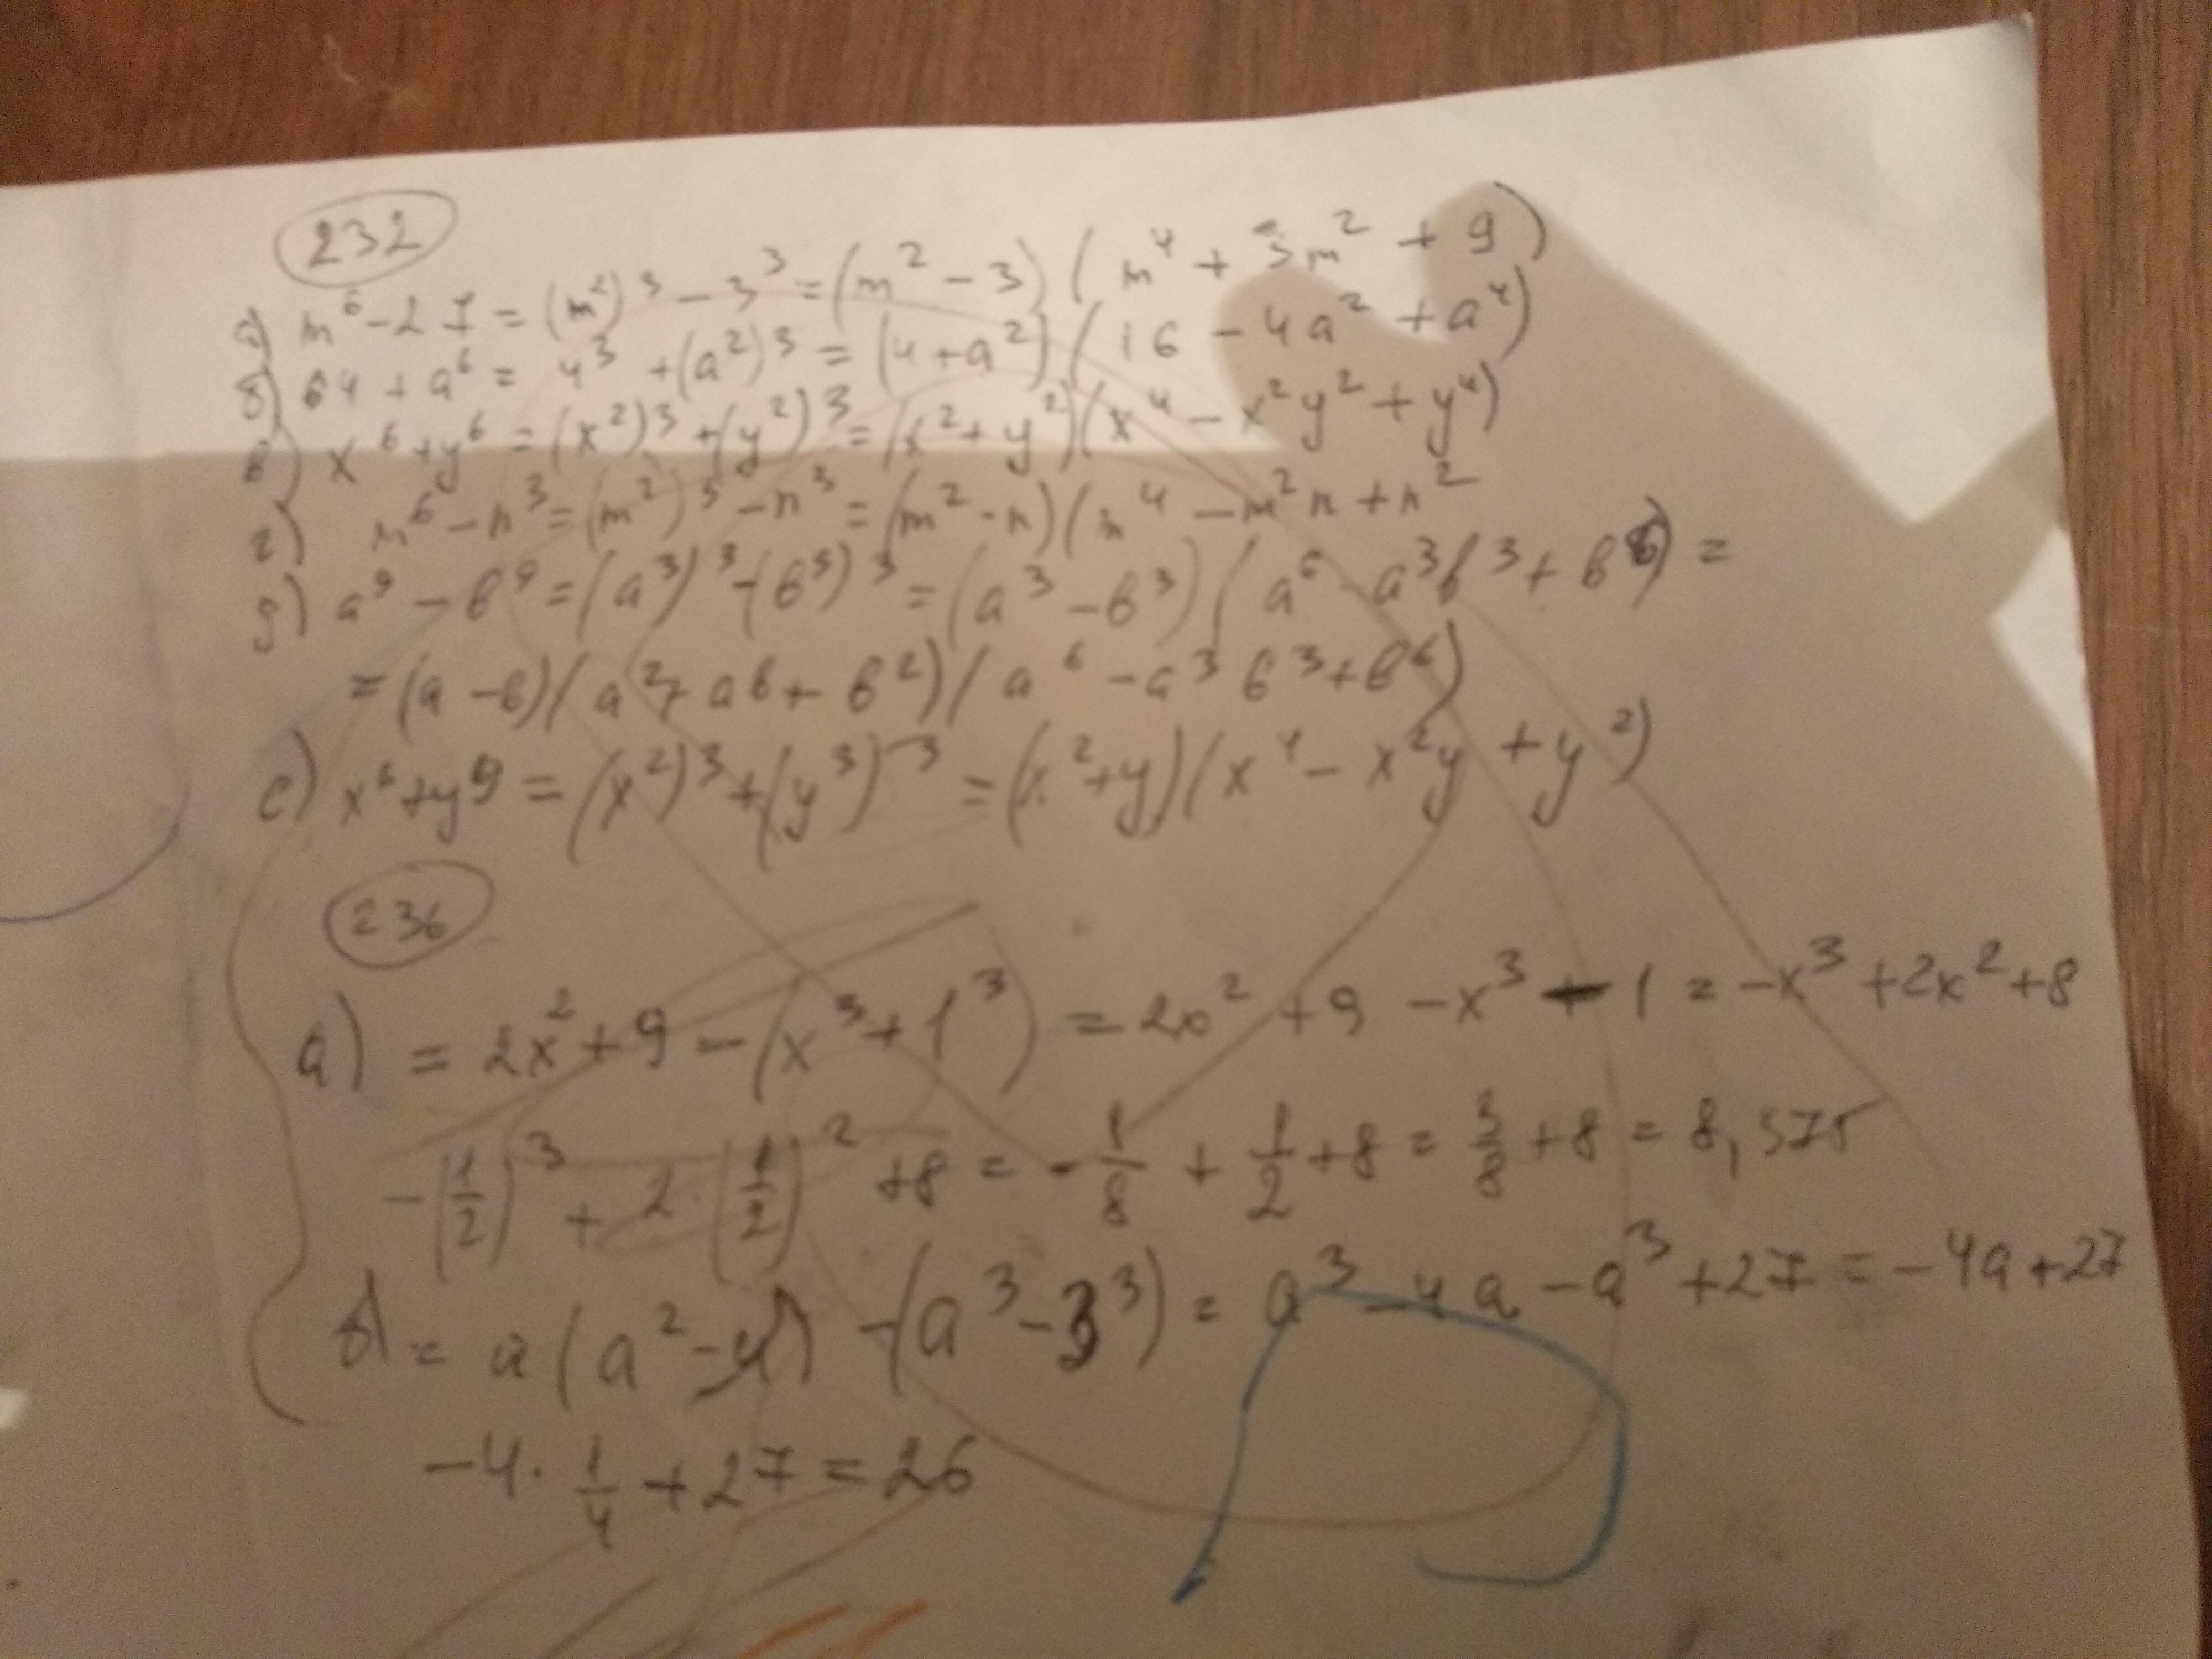 232
а) m⁶ - 27 = (m²)³ - 3³ = (m² - 3)(m⁴ + 3m² + 9)
б) 64 + a⁶ = 4³ + (a²)³ = (4 + a²)(16 - 4a² + a⁴)
в) x⁶ + y⁶ = (x²)³ + (y²)³ = (x² + y²)(x⁴ - x²y² + y⁴)
г) m⁶ - n³ = (m²)³ - n³ = (m² - n)(m⁴ - m²n + n²
д) a⁹ - b⁹ = (a³)³ - (b³)³ = (a³ - b³)(a⁶ - a³b³ + b⁶) =
= (a - b)(a² + ab + b²)(a⁶ - a³b³ + b⁶)
е) x⁶ + y⁹ = (x²)³ + (y³)³ = (x² + y)(x⁴ - x²y + y²)
236
а) = 2x² + 9 - (x³ + 1³) = 2x² + 9 - x³ - 1 = -x³ + 2x² + 8
-(1/2)³ + 2·(1/2)² + 8 = -1/8 + 1/2 + 8 = 3/8 + 8 = 8,375
б) = a(a² - 4) - (a³ - 3³) = a³ - 4a - a³ + 27 = -4a + 27
-4 · 1/4 + 27 = 26